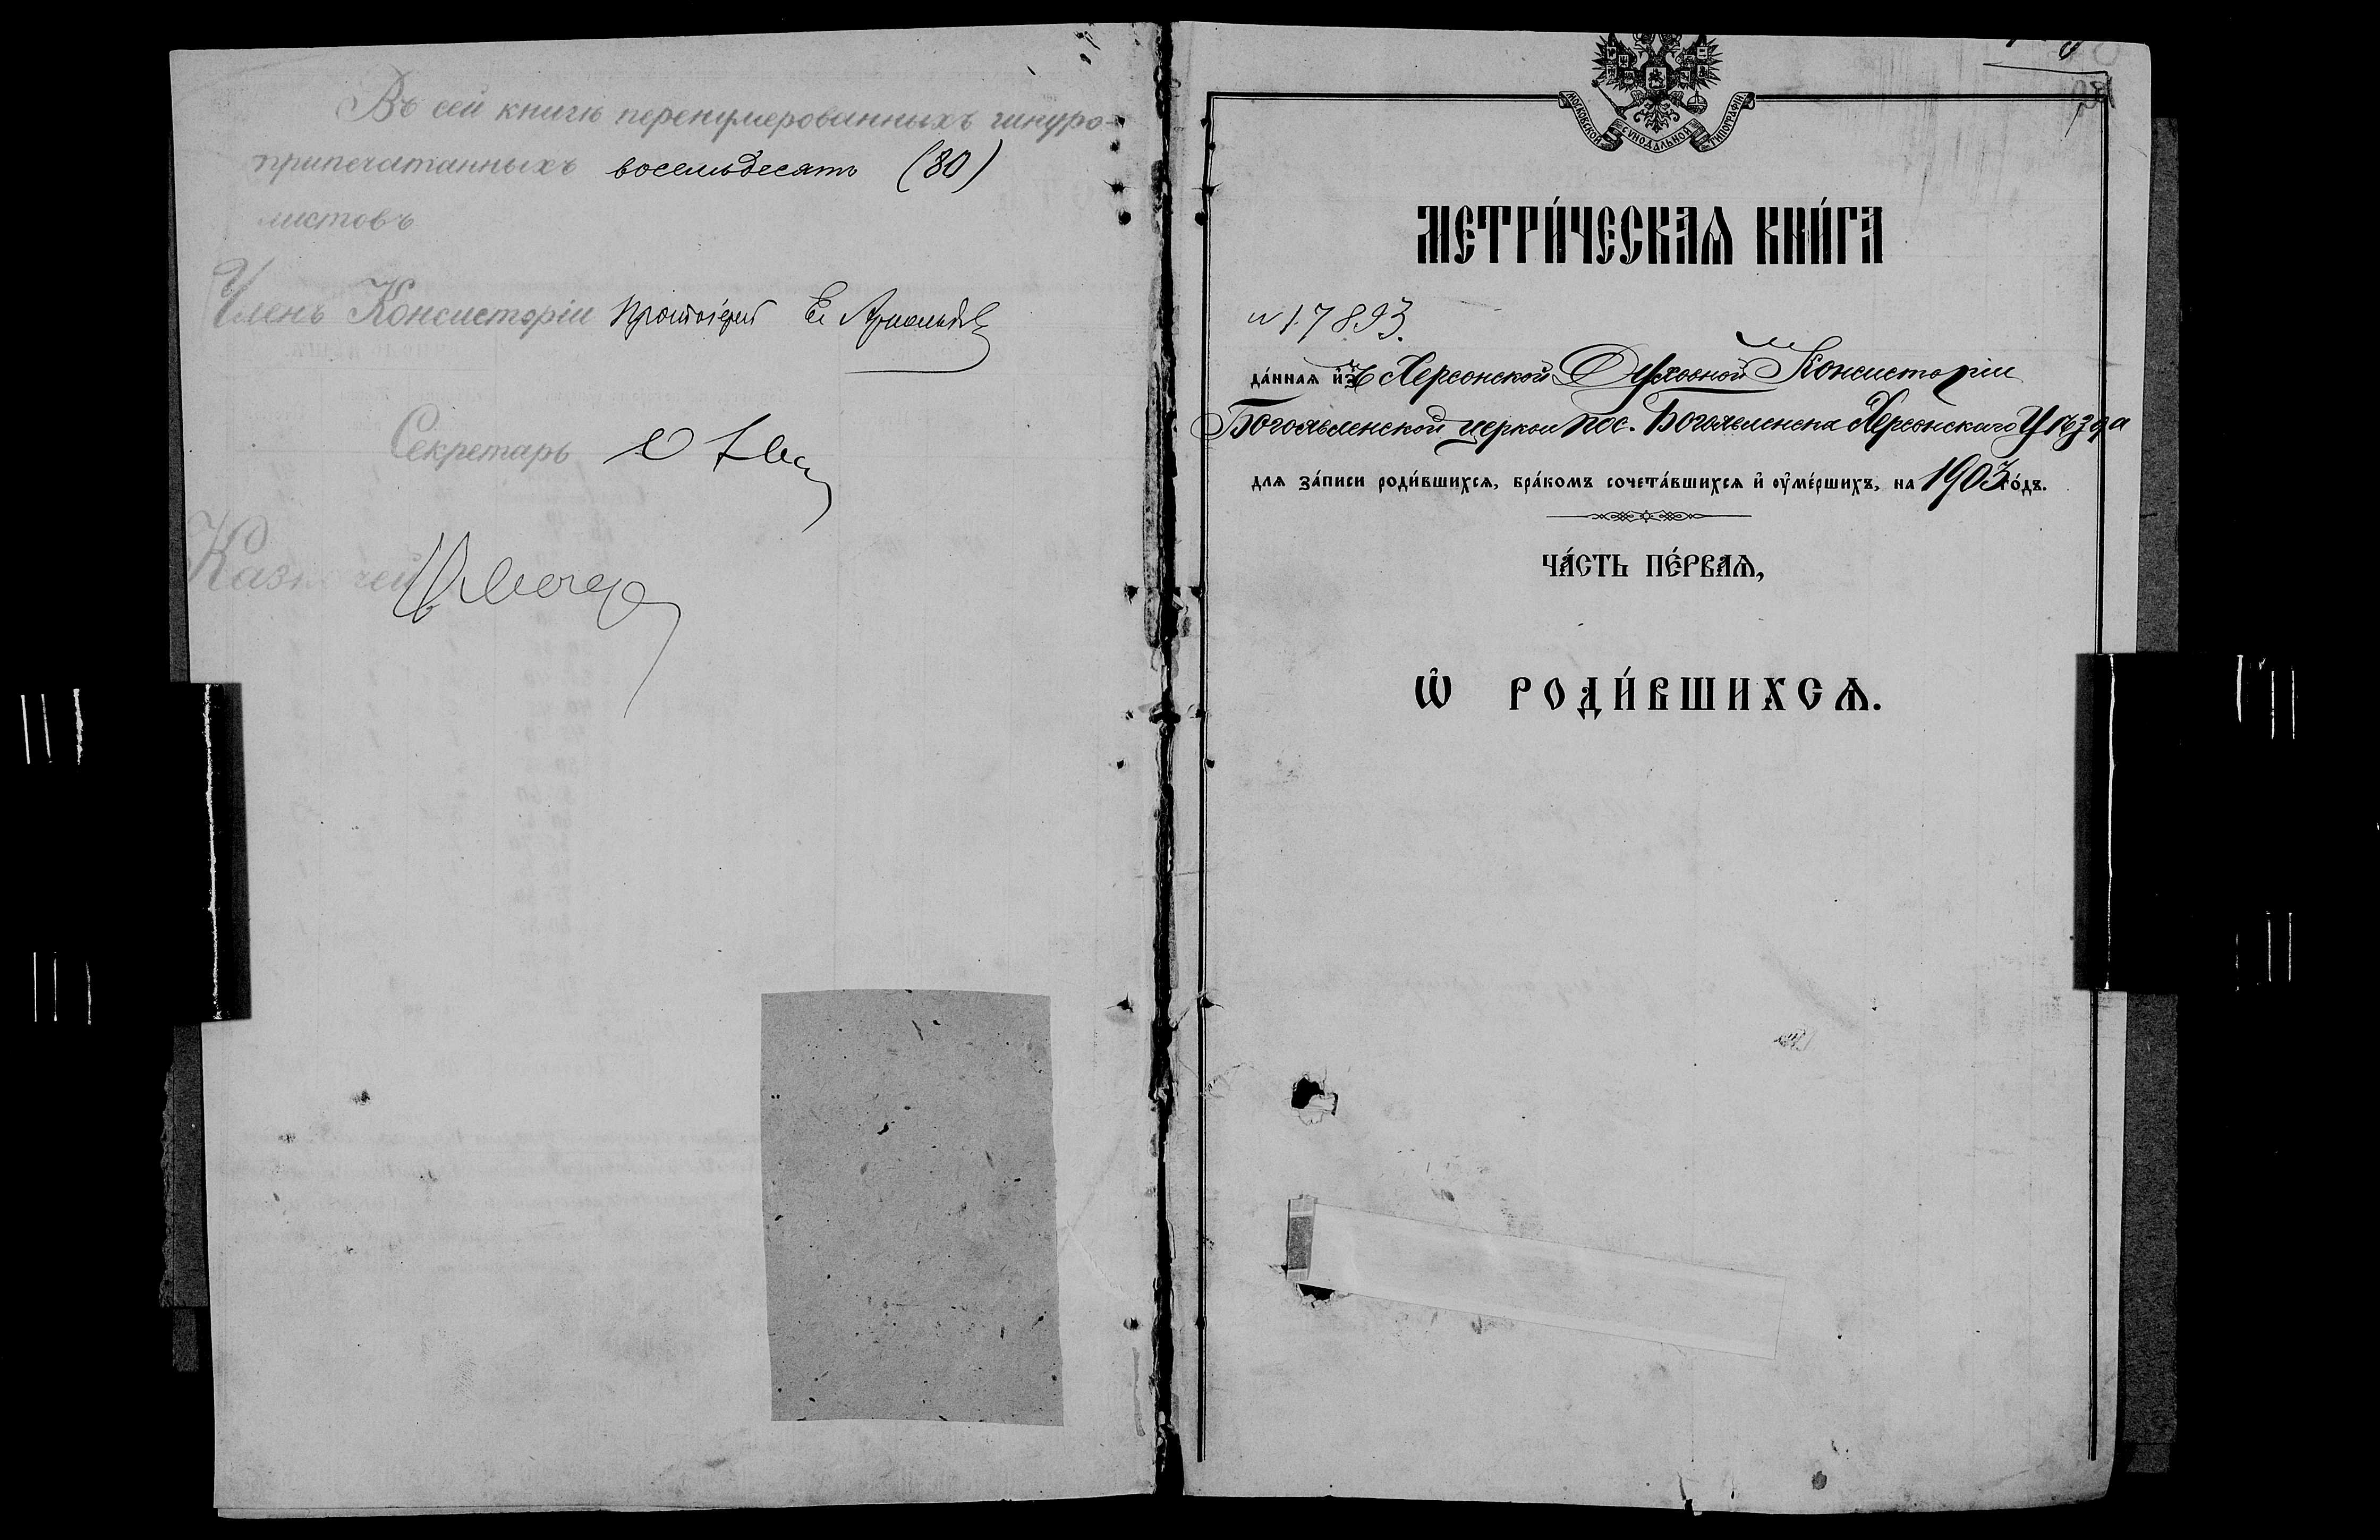 Въ сей книгѣ перенумерованныхъ шнуро-
припечатанныхъ восемьдесятъ (80)
листовъ
Членъ Консисторіи Протоіерей
Секретарь
Казначей
МОСКОВСКОЙ СѴНОДАЛЬНОЙ ТИПОГРАФІИ.
МЕТРИ́ЧЕСКАѦ КНИ́ГА
№ 17893.
да́ннаѧ и҆зъ Херсонской Духовной Консисторіи
Богоявленской церкви пос. Богоявленска Херсонскаго Уѣзда
для за́писи роди́вшихсѧ, бра́комъ сочета́вшихсѧ и҆ оу҆ме́ршихъ, на 1903 го́дъ.
ЧА́СТЬ ПЕ́РВАѦ,
Ѽ РОДИ́ВШИХСѦ.